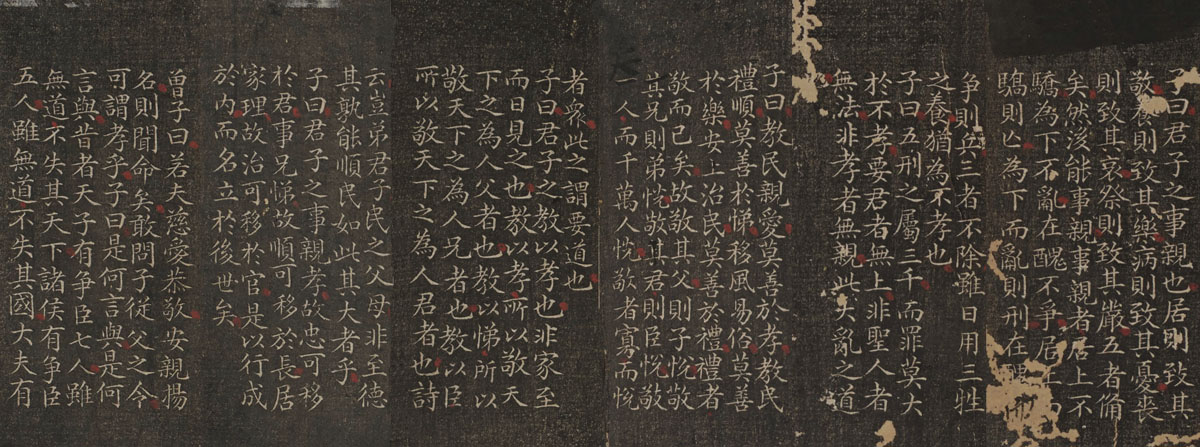 子曰君子之事親也居則致其
敬養則致其樂病則致其憂喪
則致其哀祭則致其嚴五者俻
矣然後能事親事親者居上不
驕為下不亂在醜不爭居上而
驕則亡為下而亂則刑在醜
爭則兵三者不除雖日用三牲
之養猶為不孝也
子曰五刑之屬三千而罪莫大
於不孝要君者無上非聖人者
無法非孝者無親此大亂之道
子曰教民親愛莫善於孝教民
禮順莫善於悌移風易俗莫善
於樂安上治民莫善於禮禮者
敬而已矣故敬其父則子恱敬
其兄則弟恱敬其君則臣恱敬
一人而千萬人恱敬者寡而恱
者衆此之謂要道也
子曰君子之教以孝也非家至
而日見之也教以孝所以敬天
下之為人父者也教以悌所以
敬天下之為人兄者也教以臣
所以敬天下之為人君者也詩
云豈弟君子民之父母非至德
其孰能順民如此其大者乎
子曰君子之事親孝故忠可移
於君事兄悌故順可移於長居
家理故治可移於官是以行成
於內而名立於後世矣
曾子曰若夫慈愛恭敬安親揚
名則聞命矣敢問子從父之令
可謂孝乎子曰是何言與是何
言與昔者天子有爭臣七人雖
無道不失其天下諸侯有爭臣
五人雖無道不失其國大夫有